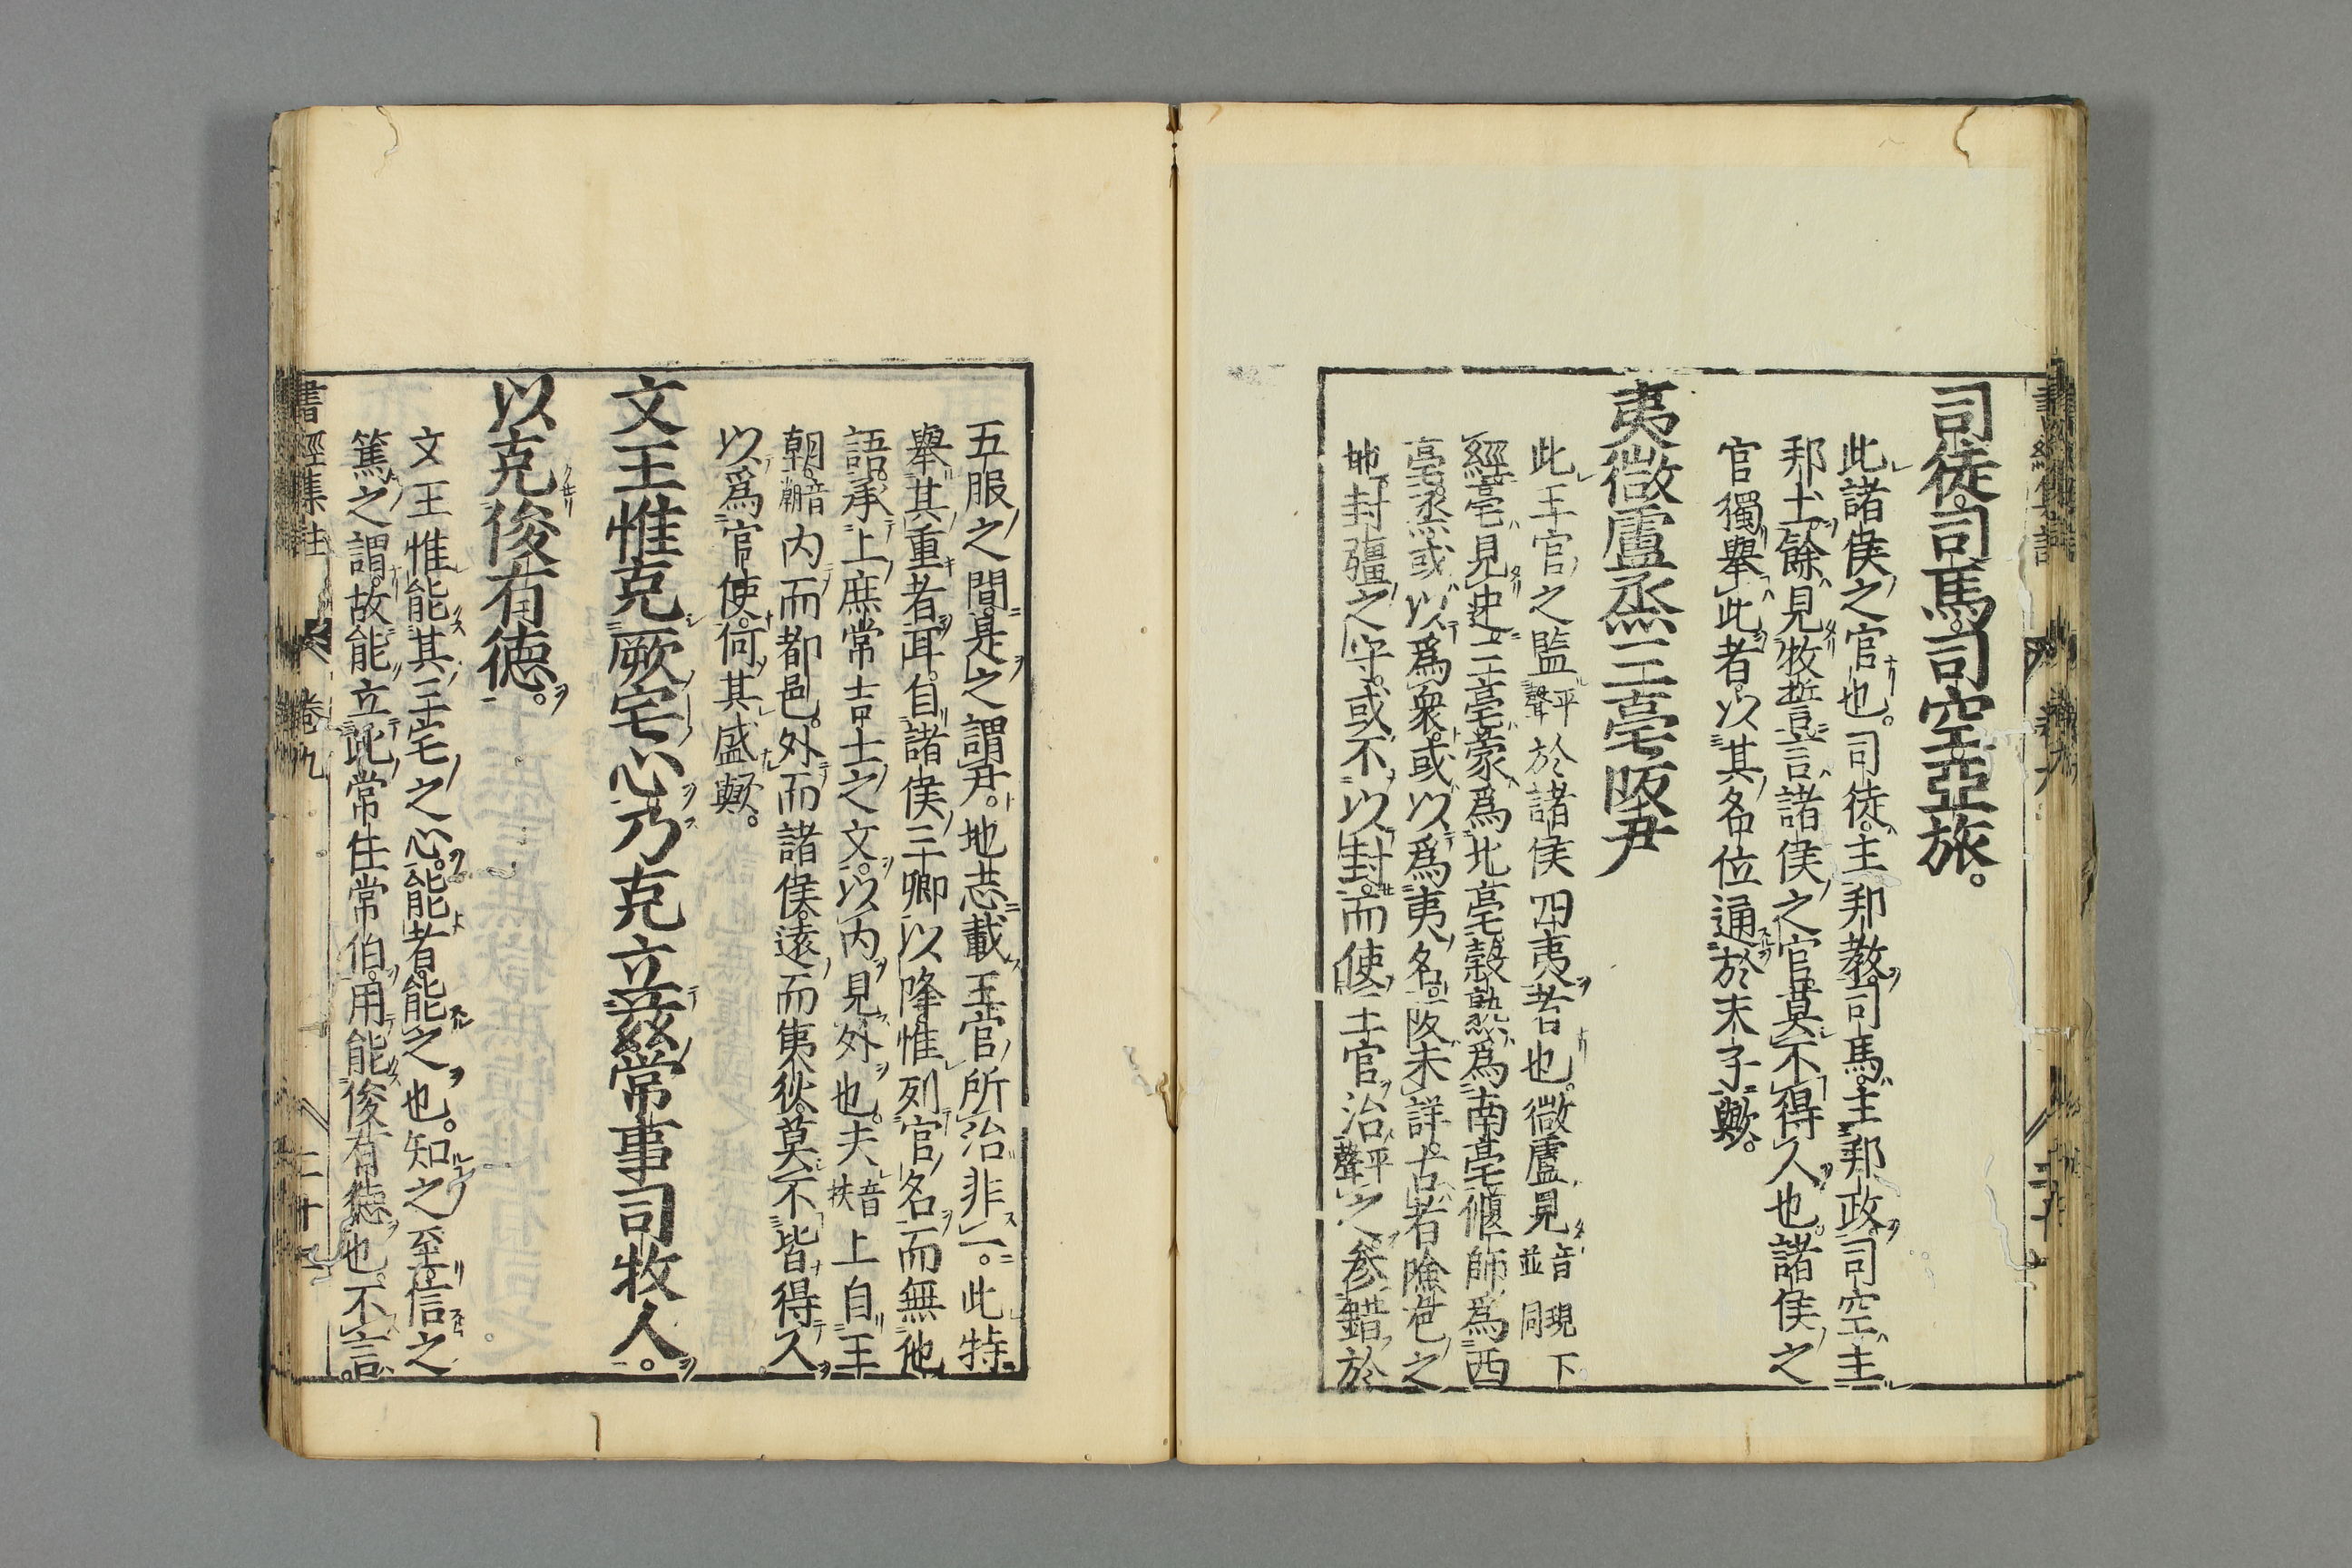 司徒。司馬。司空亞旅。
此諸侯之官也。司徒。主邦教。司馬。主邦政。司空。主
邦土。餘見牧誓言諸侯之官。莫不得人也。諸侯之
官獨舉此者。以其名位通於天子歟。
夷微盧烝三亳阪尹
此王官之監平聲於諸侯四夷者也。微盧見音現下並同
經亳見史三亳蒙爲北亳穀熟爲南亳偃師爲西
亳。烝或以爲衆。或以爲夷名。阪未詳。古者險危之
地封疆之守。或不以封。而使王官治平聲之。參錯於
五服之間。是之謂尹。地志載王官所治非一。此特
舉其重者耳。自諸侯三卿以降。惟列官名而無他
語。承上庶常吉士之文。以內見外也。夫音扶上自王
朝。音潮內而都邑。外而諸侯。遠而夷狄。莫不皆得人
以爲官使。何其盛歟。
文王惟克厥宅心乃克立茲常事司牧人。
以克俊有德。
文王惟能其三宅之心。能者。能之也。知之至。信之
篤之謂。故能立此常任常伯。用能俊有德也。不言
書經集註 卷九 二十一